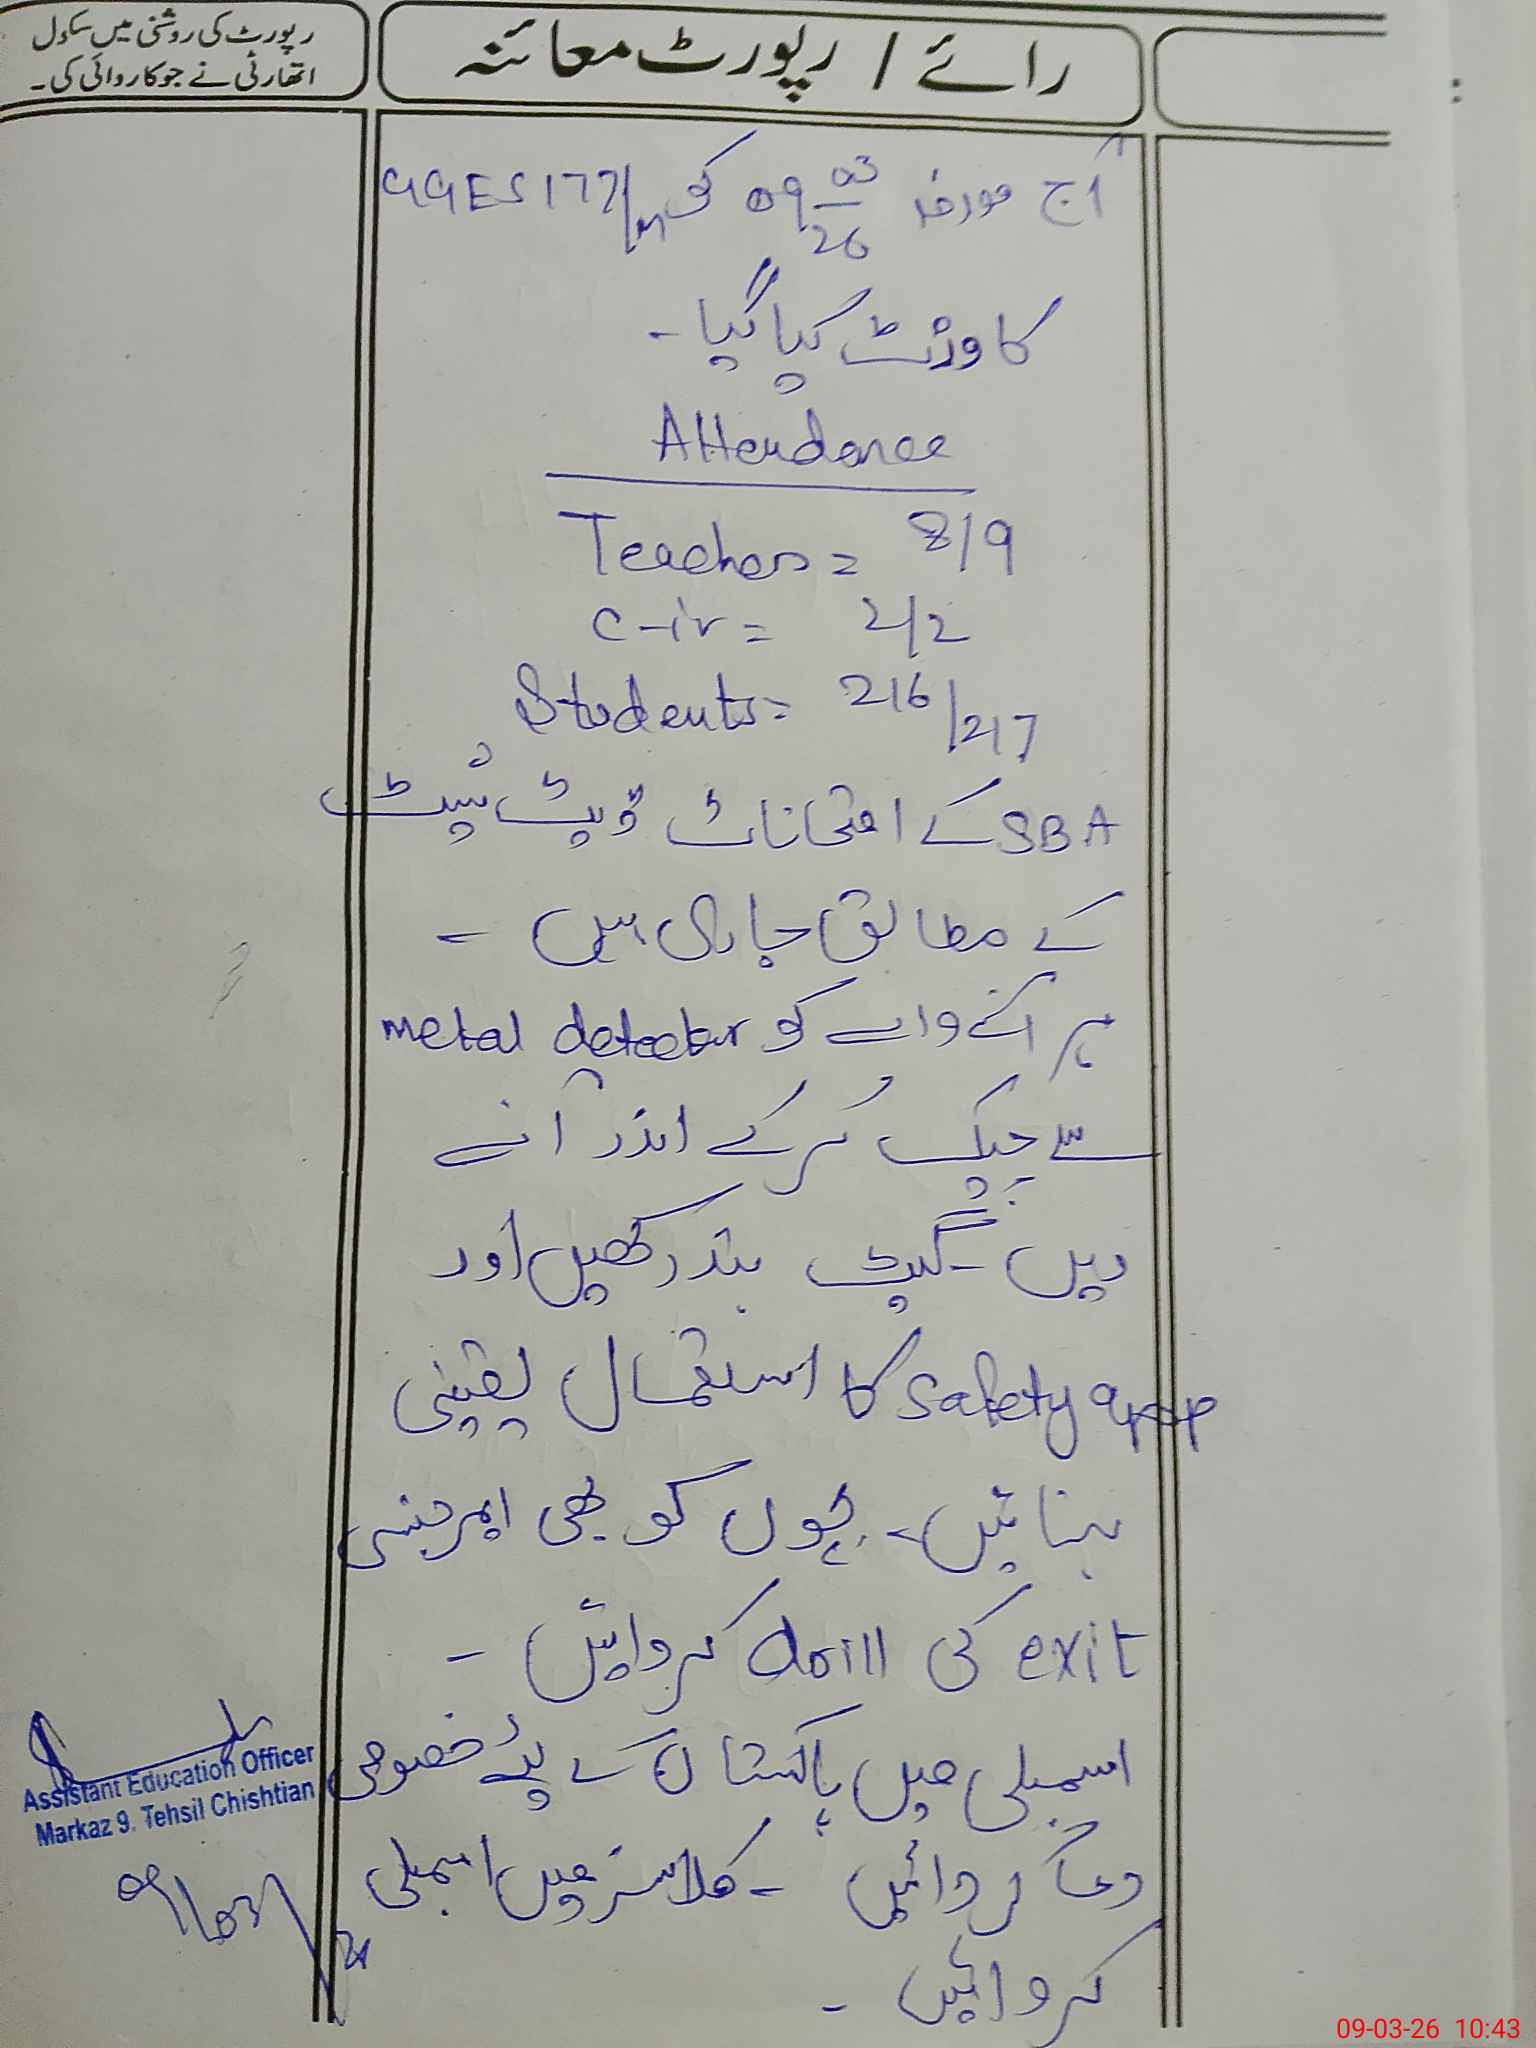 رائے / رپورٹ معائنہ
رپورٹ کی روشنی میں سکول
اتھارٹی نے جو کاروائی کی۔
آج مورخہ 09 03/26 کو GGES 177/M
کا وزٹ کیا گیا۔
Attendance
Teachers = 8/9
C-iv = 2/2
Students = 216/217
SBA کے امتحانات ڈیٹ شیٹ
کے مطابق جاری ہیں۔
ہر آنے والے کو metal detector
سے چیک کر کے اندر آنے
دیں۔ گیٹ بند رکھیں اور
Safety app کا استعمال یقینی
بنائیں۔ بچوں کو بھی ایمرجنسی
exit کی drill کروائیں۔
اسمبلی میں پاکستان کے لئے خصوصی
دعا کروائیں۔ کلاسز میں اسمبلی
کروائیں۔
Assistant Education Officer
Markaz 9, Tehsil Chishtian
09/03/26
09-03-26 10:43